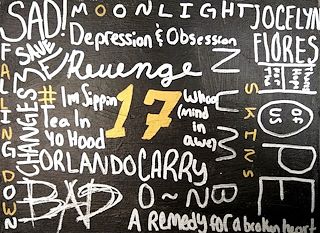 SAD!
MOONLIGHT
JOCELYN
FLORES
Depression & Obsession
SAVE
ME
FALLING DOWN
CHANGES
Revenge
NUMB
SKINS
# Im Sippin
Tea In
Yo Hood
17
Whoa
(mind
in
awe)
HOPE
OF
US
ORLANDO
CARRY
ON
BAD
A REMEDY for a broken heart